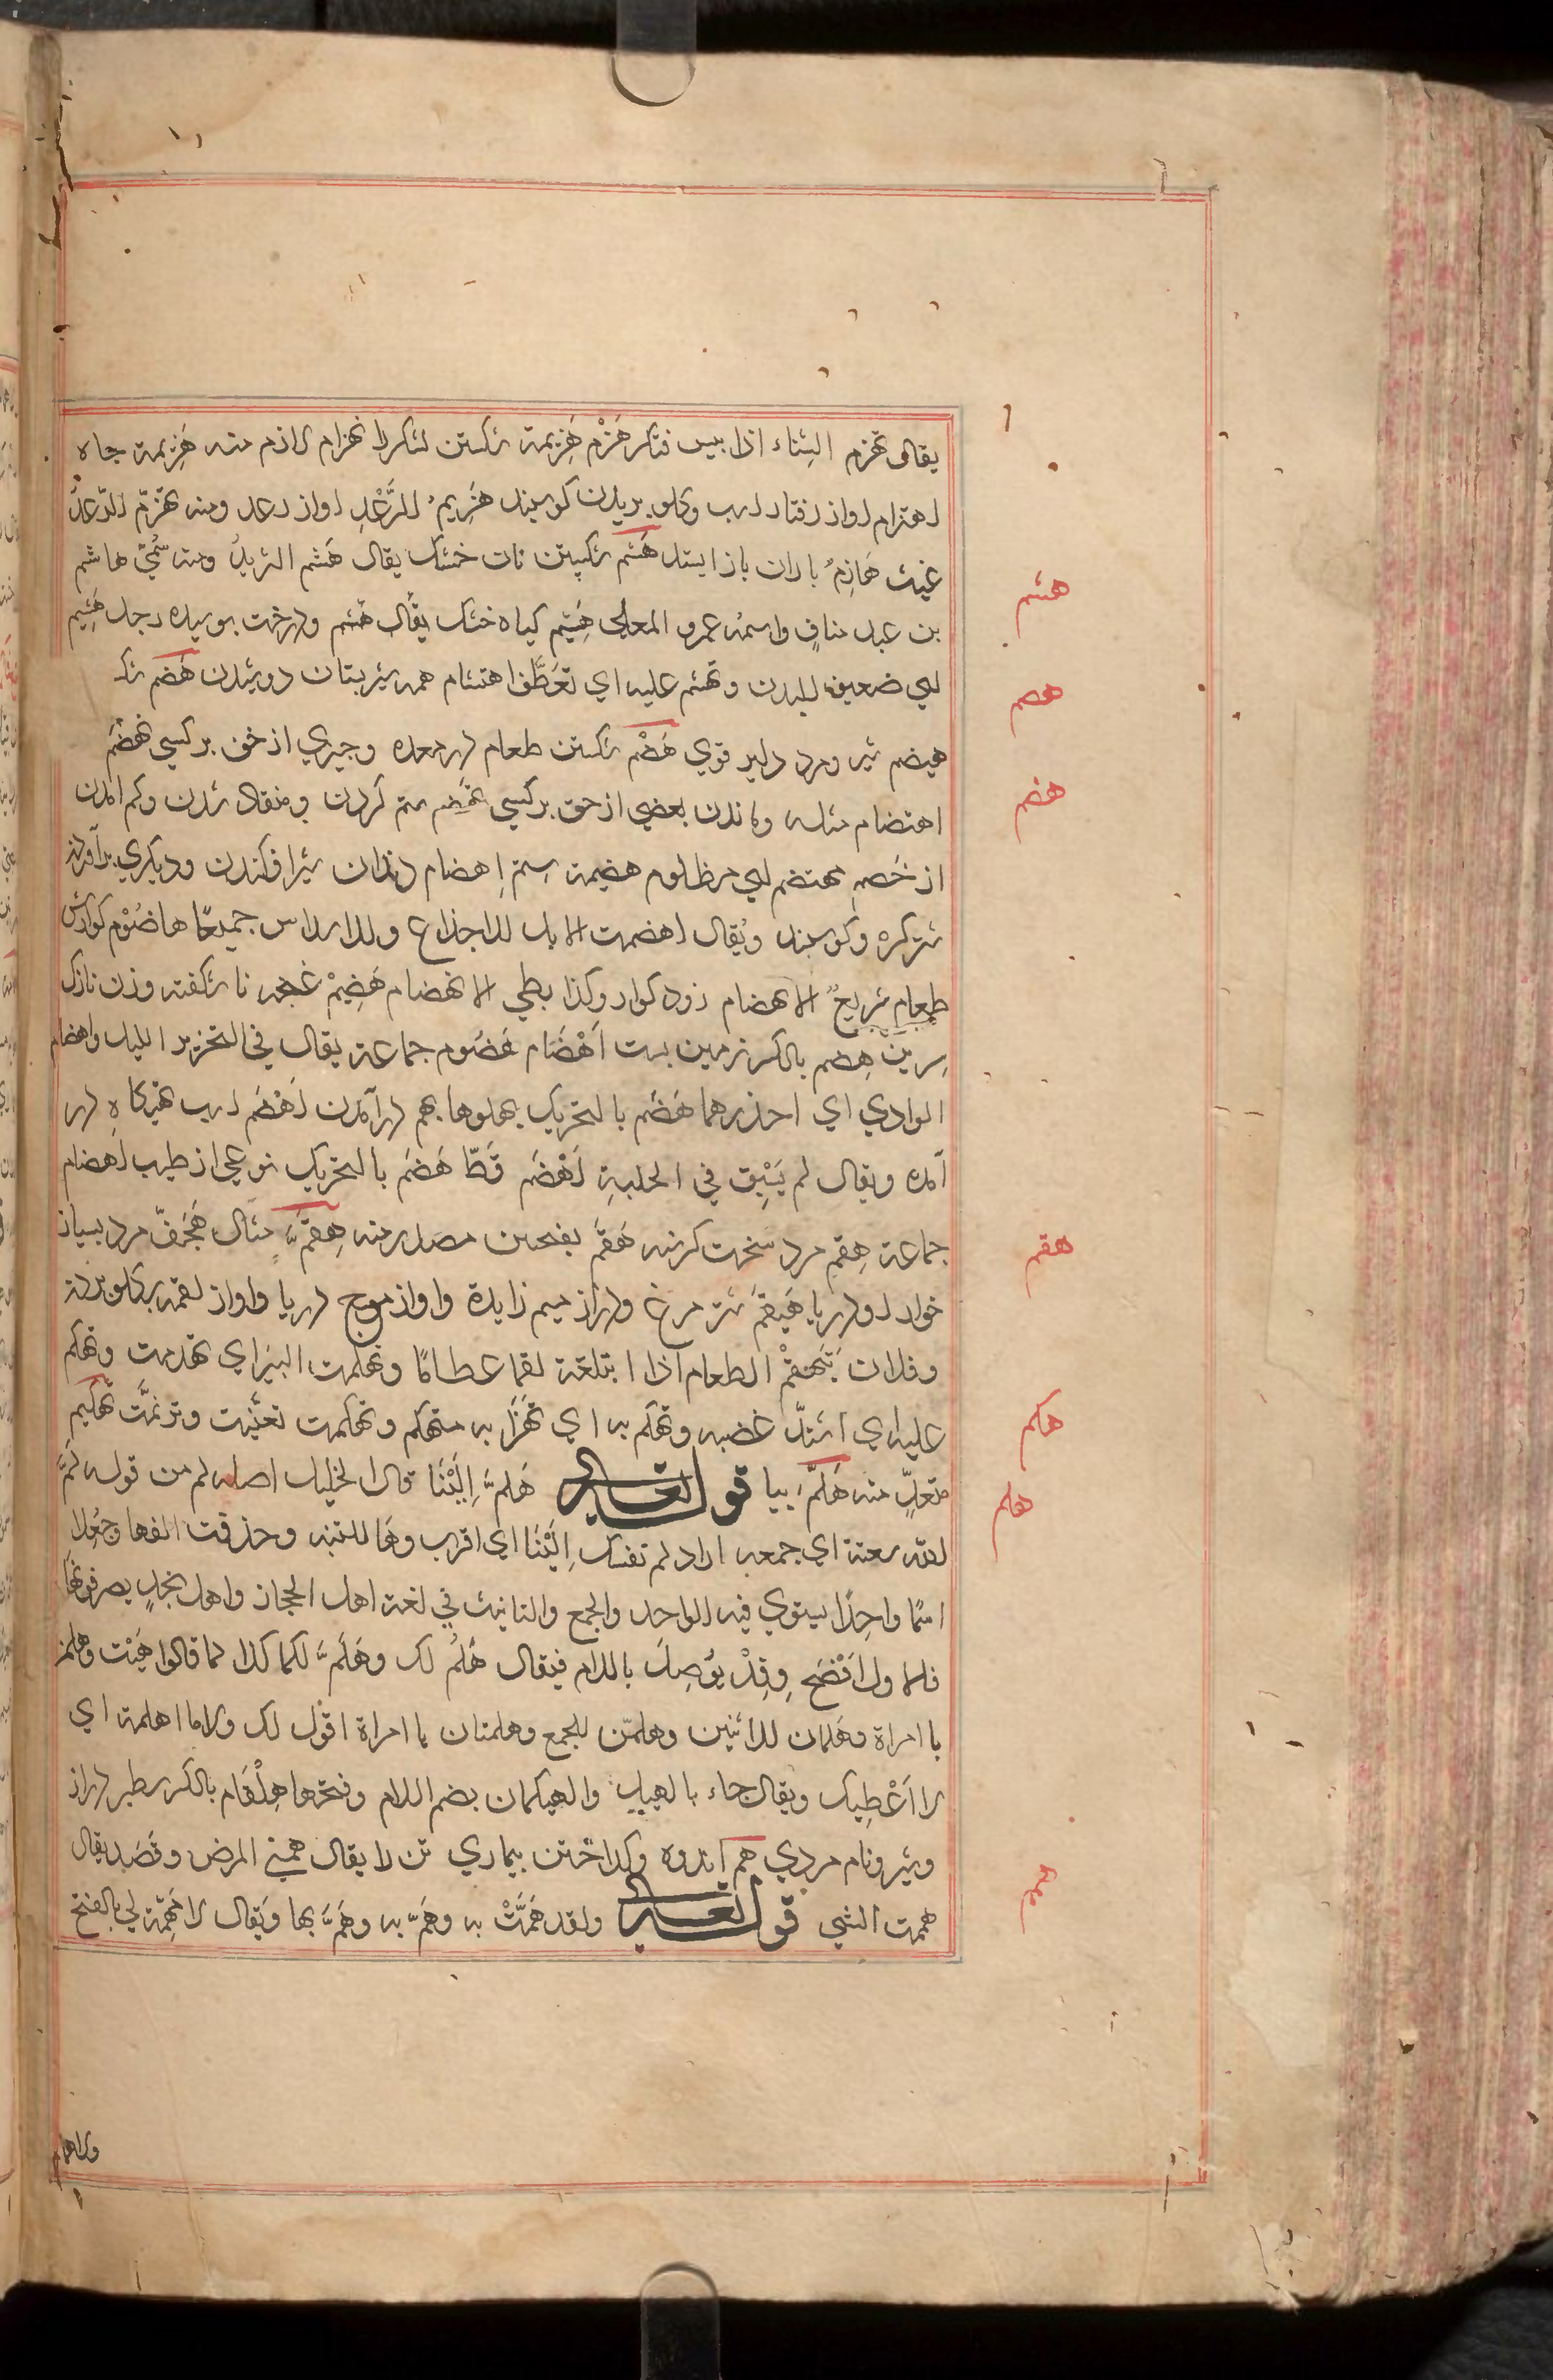 يقال تهزم السّناء اذا يبس فتكسر هَزْم هَزِيمة شكستن لشكررا انهزام لازم منه هَزِيمة جاه
اهتزام اواز رفتار اسب وكلو بريدن كوسيند هَزِيمُ الرَّعْدِ اواز رعد ومنه تهزّم الرّعدُ
غيث هَازِمُ باران باز ايستد هَشم شكستن نان خشك يقال هَشم الثريدُ ومنه سُمِّيَ هاشم
بن عبد منافٍ واسمه عمرو المعلى هَشِيم كياه خشك يقال هَشم ودرخت بوسيده رجل هَشِيم
اي ضعيف البدن وتهشم عليه اي تعَطَّف اهتشام همه شير بستان دوشيدن هَصم شكـ
هيصم شير ومرد دلير قوي هَضْم شكستن طعام در معده وچيزي از حق بر كسي تهضّم
اهتضام مثله وماندن بعضي از حق بر كسي تهضم ستم كردن ومنقاد شدن وكم امدن
از خَصم مهتضم اي مظلوم هضيمة ستم اِهضام دندان شير افكندن وديكري بر آوردن
شتر كره وكوسبند ويُقال اهضمت الابل للاجذاع وللاسداس جميعًا هاضُوْم كوارش
طعام سَريعُ الانهضام زود كوار وكذا بطي الانهضام هَضِيمْ غنچه نا شكفته وزن نازك
سرين هِضم بالكسر زمين بست اَهْضَام هُضُوم جماعة يقال في التحزير الليل واهضام
الوادي اي احذرهما هَضَم بالتحريك پهلوها بهم درآمدن اَهْضَم اسب تهيكاه در
آمده ويقال لم يَسْبِق في الحلبةِ اَهْضَم قَطّ هَضَم بالتحريك نوعي از طيب اهضام
جماعة هِقِم مرد سَخت كرسنه هَقَم بفتحتين مصدر منه هِقَمّ مثال هِجَفّ مرد بسيار
خوار ودريا هَيْقَم شتر مرغ ودراز ميم زايدة واواز موج دريا واواز لقمه بركلو بردن
وفلان يَتَهقمْ الطعام اذا ابتلعه لقما عظامًا وتهكمت البئر اي تهدمت وتهكم
عليه اي اشتدّ غضبه وتهكم به اي تهزّا به متهكم وتهكمت تعنّيت وترنمَّت تهكيم
متعدٍّ منه هَلَمَّ بيا قوله تعالى هَلُمَّ اِلَيْنَا قال الخليل اصله لم من قوله لَمَّ
الله شعثه اي جمعه اراد لم نفسك اِلَيْنَا اي اقرب وهَا للتنبيه وحذفت الفها وجُعِلا
اسمًا واحِدًا يستوي فيه الواحد والجمع والتانيث في لغة اهل الحجاز واهل نجدٍ يصرفونها
فلما ولاول اَفْصَحِ وقَدْ يُوْصل باللام فيقال هَلُمَّ لك وهَلُمَّ لكما كذا كما قالوا هَيْت وهلمز
يا امراة وهَلمان للاثنين وهلمّن للجمع وهلمنان يا امراة اقول لك ولاما اهلمه اي
لا اَعْطِيك ويقال جاء بالهيل والهيلمان بضم اللام وفتحها هِلْقام بالكسر سطبر دراز
وشير ونام مردي هم اندوه وكداختن بيماري تن را يقال همني المرض وقَصَد يقال
هممت الشي قوله تعالى ولقد هَمَّتْ به وهَمّ به وهَمَّ بها ويقال لا مَهَمّة لي بالفتح
هشم
هصم
هضم
هقم
هكم
هلم
همم
ولاهمام